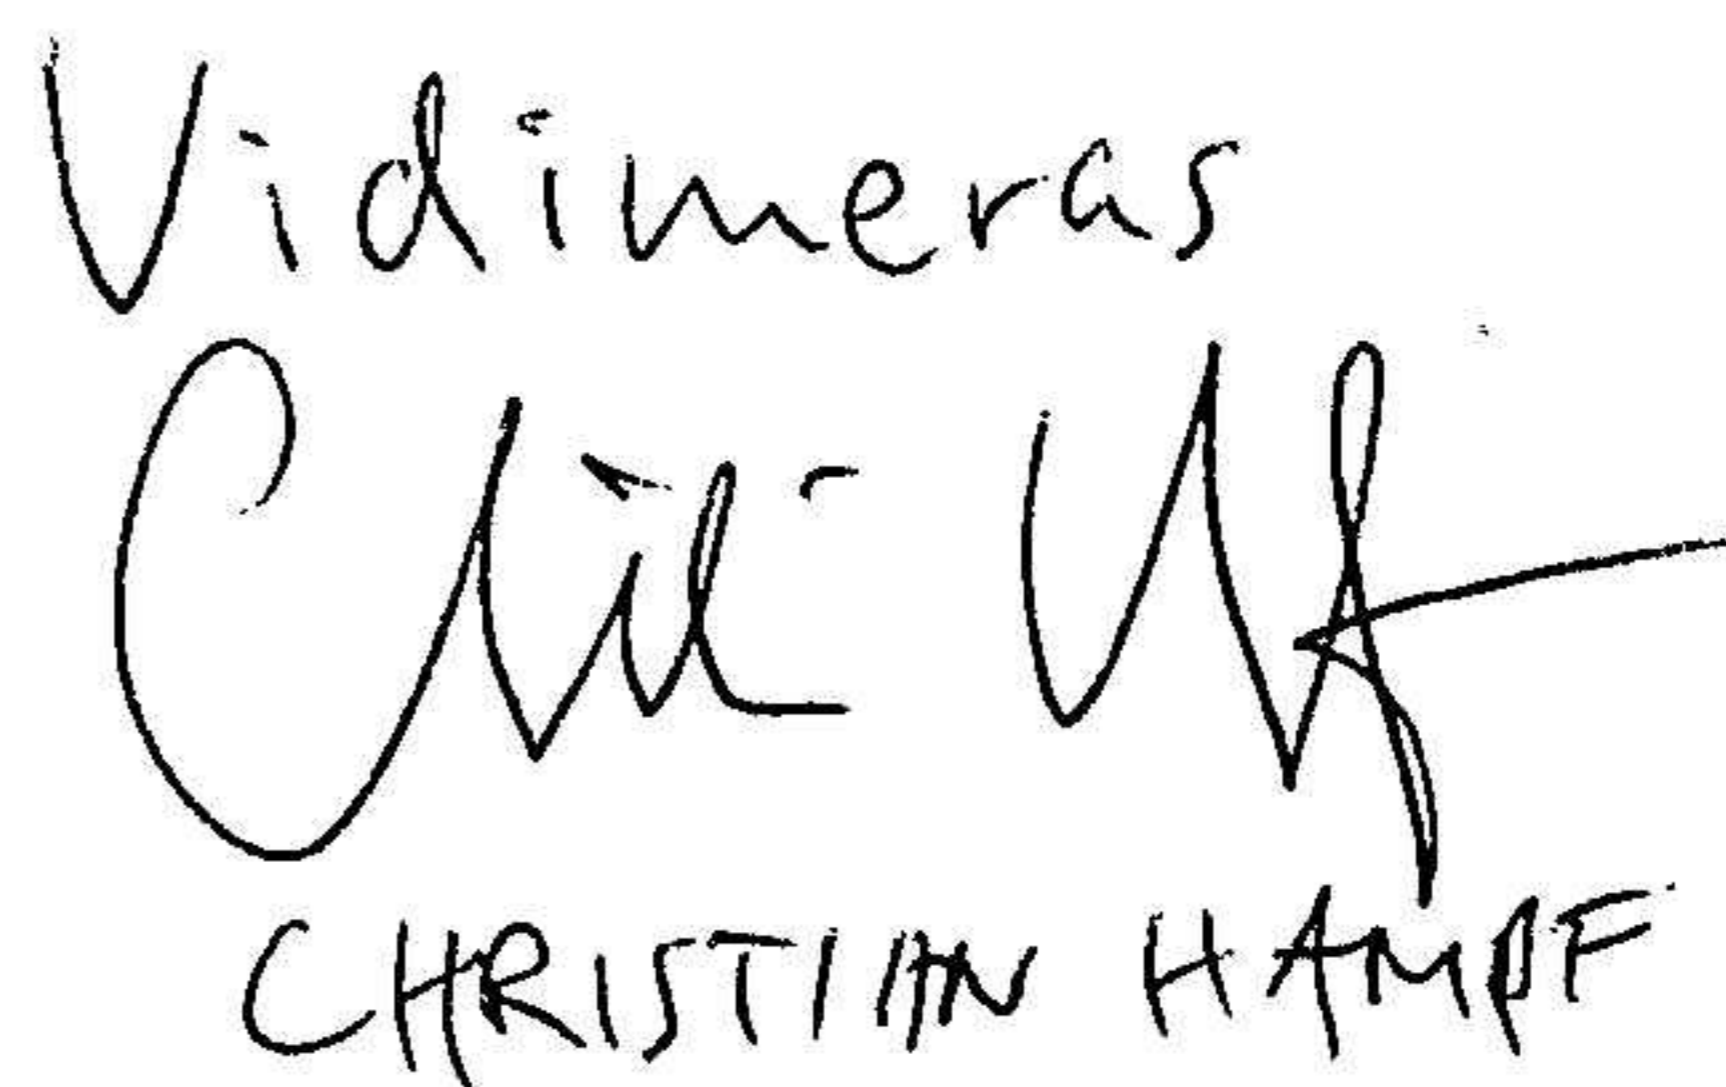 Vidimeras
CHRISTIAN HAMPF